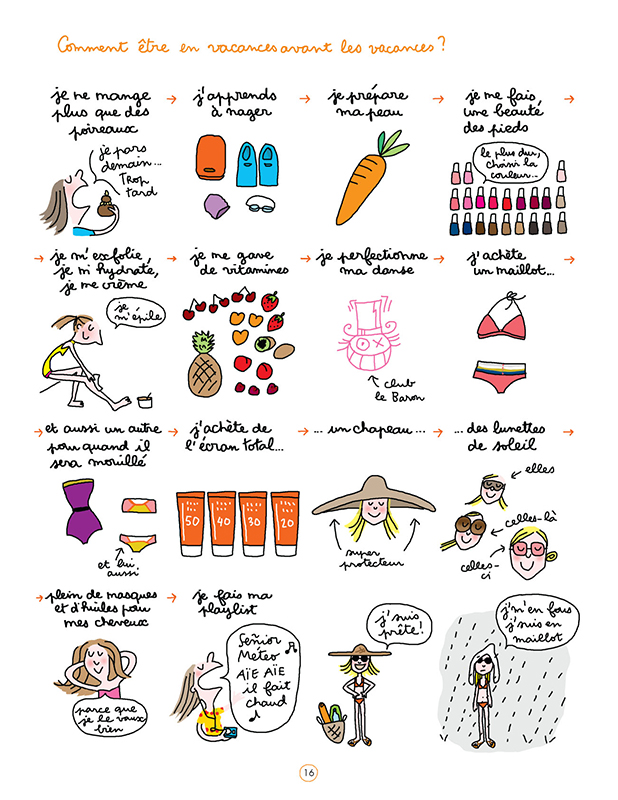 Comment être en vacances avant les vacances ?
je ne mange
plus que des
poireaux
je pars
demain...
Trop
tard
j'apprends
à nager
je prépare
ma peau
je me fais
une beauté
des pieds
le plus dur,
choisir la
couleur...
je m'exfolie,
je m'hydrate,
je me crème
je
m'épile
je me gave
de vitamines
je perfectionne
ma danse
club
le Baron
j'achète
un maillot...
et aussi un autre
pour quand il
sera mouillé
et lui
aussi
j'achète de
l'écran total...
50
40
30
20
... un chapeau ...
super
protecteur
... des lunettes
de soleil
elles
celles-là
celles-
ci
plein de masques
et d'huiles pour
mes cheveux
parce que
je le vaux
bien
je fais ma
playlist
Señior
Météo
AÏE AÏE
il fait
chaud
j'suis
prête!
j'm'en fous
j'suis en
maillot
16